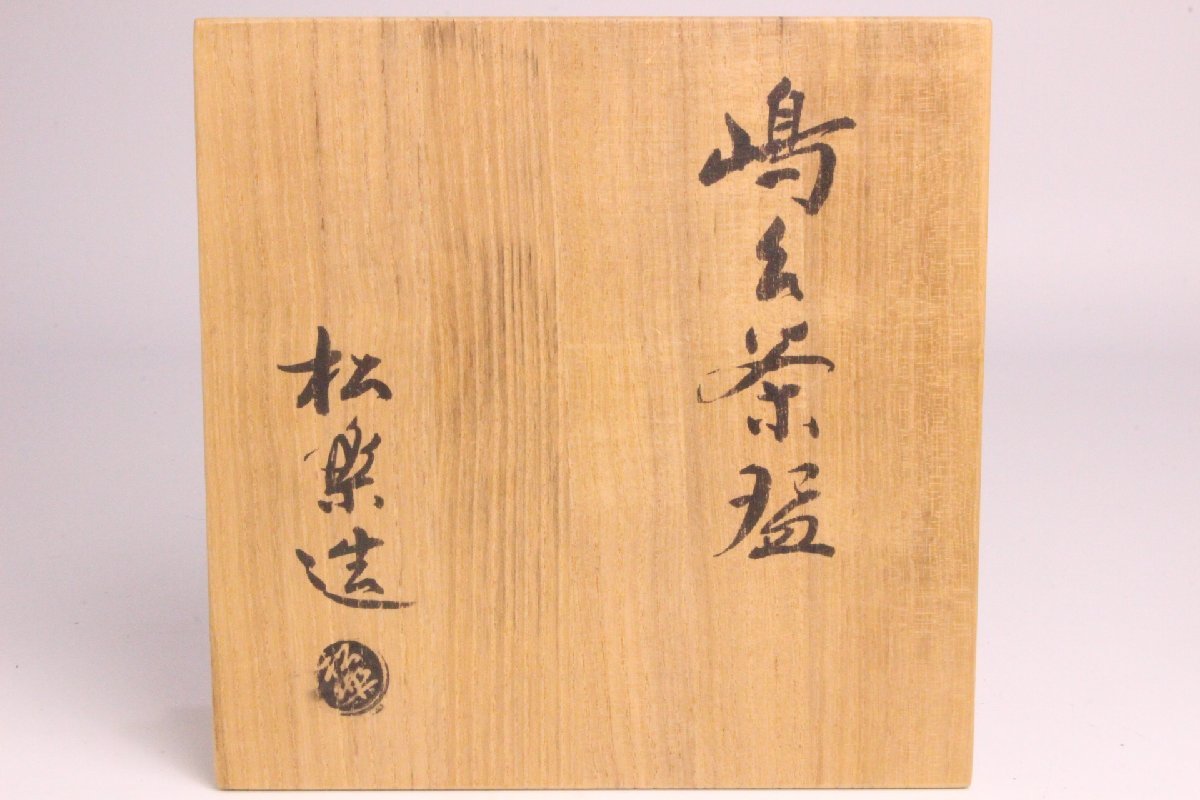 嶋台茶盌
松楽造
松楽